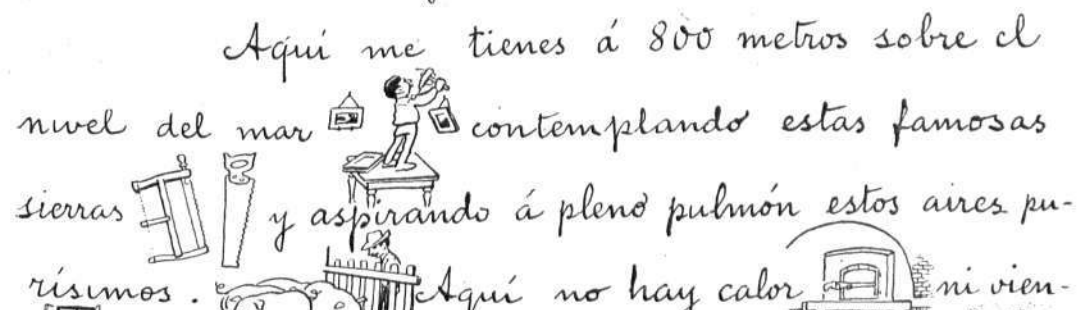 Aquí me tienes á 800 metros sobre el
nivel del mar contemplando estas famosas
sierras y aspirando á pleno pulmón estos aires pu-
rísimos. Aquí no hay calor ni vien-